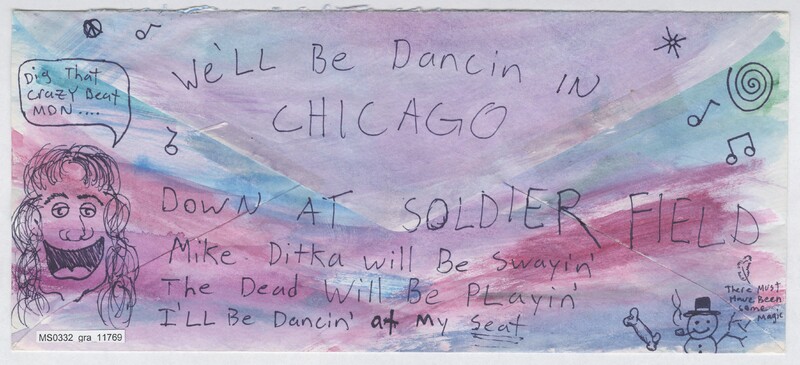 We'LL Be Dancin IN
CHICAGO
Dig That
Crazy Beat
MDN....
DOWN AT SOLDIER FIELD
Mike Ditka will Be Swayin'
The Dead Will Be PLayin'
I'LL Be Dancin' at My Seat
There Must
Have Been
some
Magic
MS0332 gra_11769